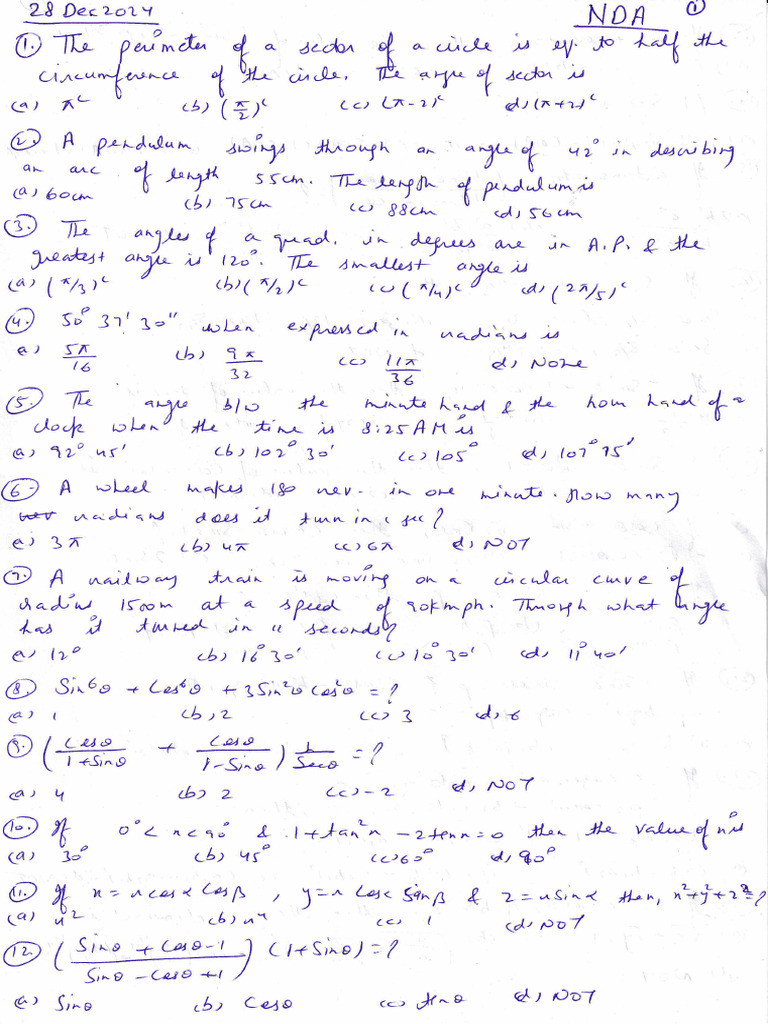 28 Dec 2024
NDA ①
①. The perimeter of a sector of a circle is eq. to half the
circumference of the circle. The angle of sector is
(a) πᶜ (b) (π/2)ᶜ (c) (π-2)ᶜ (d) (π+2)ᶜ
②. A pendulum swings through an angle of 42° in describing
an arc of length 55cm. The length of pendulum is
(a) 60cm (b) 75cm (c) 88cm (d) 56cm
③. The angles of a quad. in degrees are in A.P. & the
greatest angle is 120°. The smallest angle is
(a) (π/3)ᶜ (b) (π/2)ᶜ (c) (π/4)ᶜ (d) (2π/5)ᶜ
④. 50° 37' 30" when expressed in radians is
a) 5π/16 (b) 9π/32 (c) 11π/36 d) None
⑤. The angle b/w the minute hand & the hour hand of a
clock when the time is 8:25 AM is
a) 92° 45' (b) 102° 30' (c) 105° d) 107° 75'
⑥. A wheel makes 180 rev. in one minute. How many
radians does it turn in 1 sec?
a) 3π (b) 4π (c) 6π d) NOT
⑦. A railway train is moving on a circular curve of
radius 1500m at a speed of 90kmph. Through what angle
has it turned in 11 seconds?
a) 12° (b) 16° 30' (c) 10° 30' (d) 11° 40'
⑧. Sin⁶θ + Cos⁶θ + 3Sin²θ Cos²θ = ?
(a) 1 (b) 2 (c) 3 d) 6
⑨. (Cosθ/(1+Sinθ) + Cosθ/(1-Sinθ)) 1/Secθ = ?
(a) 4 (b) 2 (c) -2 d) NOT
⑩. If 0° < x < 90° & 1+tan²x - 2tanx = 0 then the value of x is
(a) 30° (b) 45° (c) 60° d) 90°
⑪. If x = r cosα Cosβ, y = r Cosα Sinβ & z = r Sinα then, x²+y²+z² = ?
(a) r² (b) r⁴ (c) 1 (d) NOT
⑫. ((Sinθ + Cosθ - 1)/(Sinθ - Cosθ + 1)) (1+Sinθ) = ?
a) Sinθ (b) Cosθ (c) tanθ d) NOT